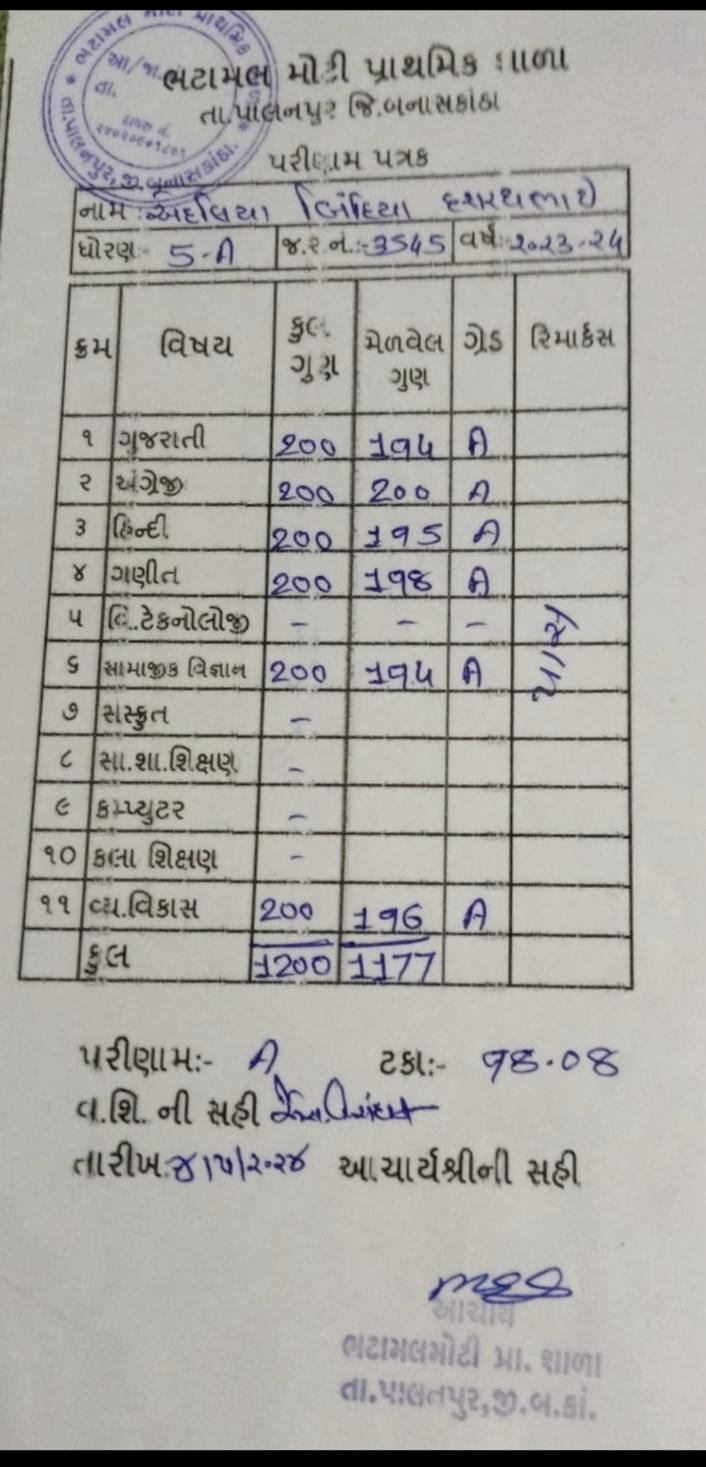 ભટામલ મોટી પ્રાથમિક શાળા
તા.પાલનપુર જિ.બનાસકાંઠા
પરીણામ પત્રક
નામ :- દશરથભાઈ
ધોરણ:- 5-A જ.ર.નં.:-3545 વર્ષ:-૨૦૨૩-૨૪
ક્રમ વિષય કુલ ગુણ મેળવેલ ગુણ ગ્રેડ રિમાર્કસ
૧ ગુજરાતી 200 194 A
૨ અંગ્રેજી 200 200 A
૩ હિન્દી 200 195 A
૪ ગણીત 200 198 A
૫ વિ.ટેકનોલોજી - - -
પાસ
૬ સામાજીક વિજ્ઞાન 200 194 A
૭ સંસ્કૃત -
૮ સા.શા.શિક્ષણ -
૯ કમ્પ્યુટર -
૧૦ કલા શિક્ષણ -
૧૧ વ્ય.વિકાસ 200 196 A
કુલ 1200 1177
પરીણામ:- A ટકા:- 98.08
વ.શિ. ની સહી
તારીખ:૪/૫/૨૦૨૪ આચાર્યશ્રીની સહી
આચાર્ય
ભટામલમોટી પ્રા. શાળા
તા.પાલનપુર,જી.બ.કાં.